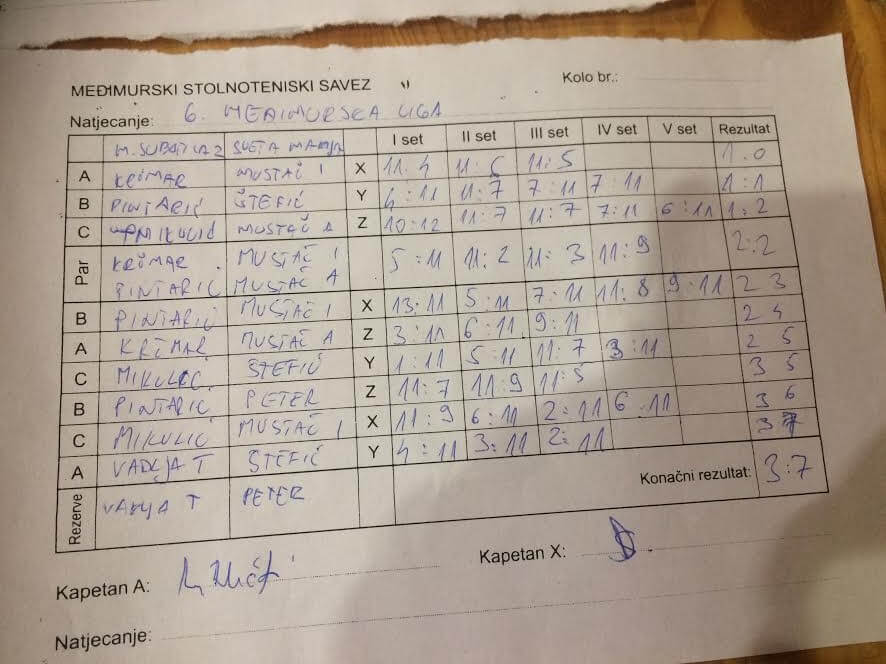 MEĐIMURSKI STOLNOTENISKI SAVEZ
Kolo br.:
Natjecanje: 6. MEĐIMURSKA LIGA
M. SUBOTICA 2 SVETA MARIJA I set II set III set IV set V set Rezultat
A KRČMAR MUSTAČ I X 11:4 11:6 11:5 1:0
B PINTARIĆ ŠTEFIĆ Y 4:11 11:7 7:11 7:11 1:1
C MIKULIĆ MUSTAČ A Z 10:12 11:7 11:7 7:11 6:11 1:2
Par KRČMAR MUSTAČ I 5:11 11:2 11:3 11:9 2:2
PINTARIĆ MUSTAČ A
B PINTARIĆ MUSTAČ I X 13:11 5:11 7:11 11:8 9:11 2 3
A KRČMAR MUSTAČ A Z 3:11 6:11 9:11 2 4
C MIKULIĆ ŠTEFIĆ Y 1:11 5:11 11:7 3:11 2 5
B PINTARIĆ PETER Z 11:7 11:9 11:5 3 5
C MIKULIĆ MUSTAČ I X 11:9 6:11 2:11 6:11 3 6
A VADLJA T ŠTEFIĆ Y 4:11 3:11 2:11 3 7
Rezerve VADLJA T PETER Konačni rezultat: 3:7
Kapetan A:
Kapetan X:
Natjecanje: